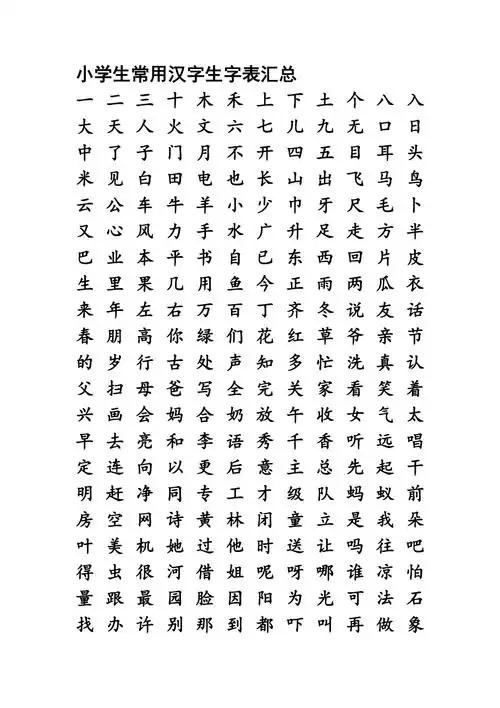 小学生常用汉字生字表汇总
一 二 三 十 木 禾 上 下 土 个 八 入
大 天 人 火 文 六 七 儿 九 无 口 日
中 了 子 门 月 不 开 四 五 目 耳 头
米 见 白 田 电 也 长 山 出 飞 马 鸟
云 公 车 牛 羊 小 少 巾 牙 尺 毛 卜
又 心 风 力 手 水 广 升 足 走 方 半
巴 业 本 平 书 自 已 东 西 回 片 皮
生 里 果 几 用 鱼 今 正 雨 两 瓜 衣
来 年 左 右 万 百 丁 齐 冬 说 友 话
春 朋 高 你 绿 们 花 红 草 爷 亲 节
的 岁 行 古 处 声 知 多 忙 洗 真 认
父 扫 母 爸 写 全 完 关 家 看 笑 着
兴 画 会 妈 合 奶 放 午 收 女 气 太
早 去 亮 和 李 语 秀 千 香 听 远 唱
定 连 向 以 更 后 意 主 总 先 起 干
明 赶 净 同 专 工 才 级 队 蚂 蚁 前
房 空 网 诗 黄 林 闭 童 立 是 我 朵
叶 美 机 她 过 他 时 送 让 吗 往 吧
得 虫 很 河 借 姐 呢 呀 哪 谁 凉 怕
量 跟 最 园 脸 因 阳 为 光 可 法 石
找 办 许 别 那 到 都 吓 叫 再 做 象